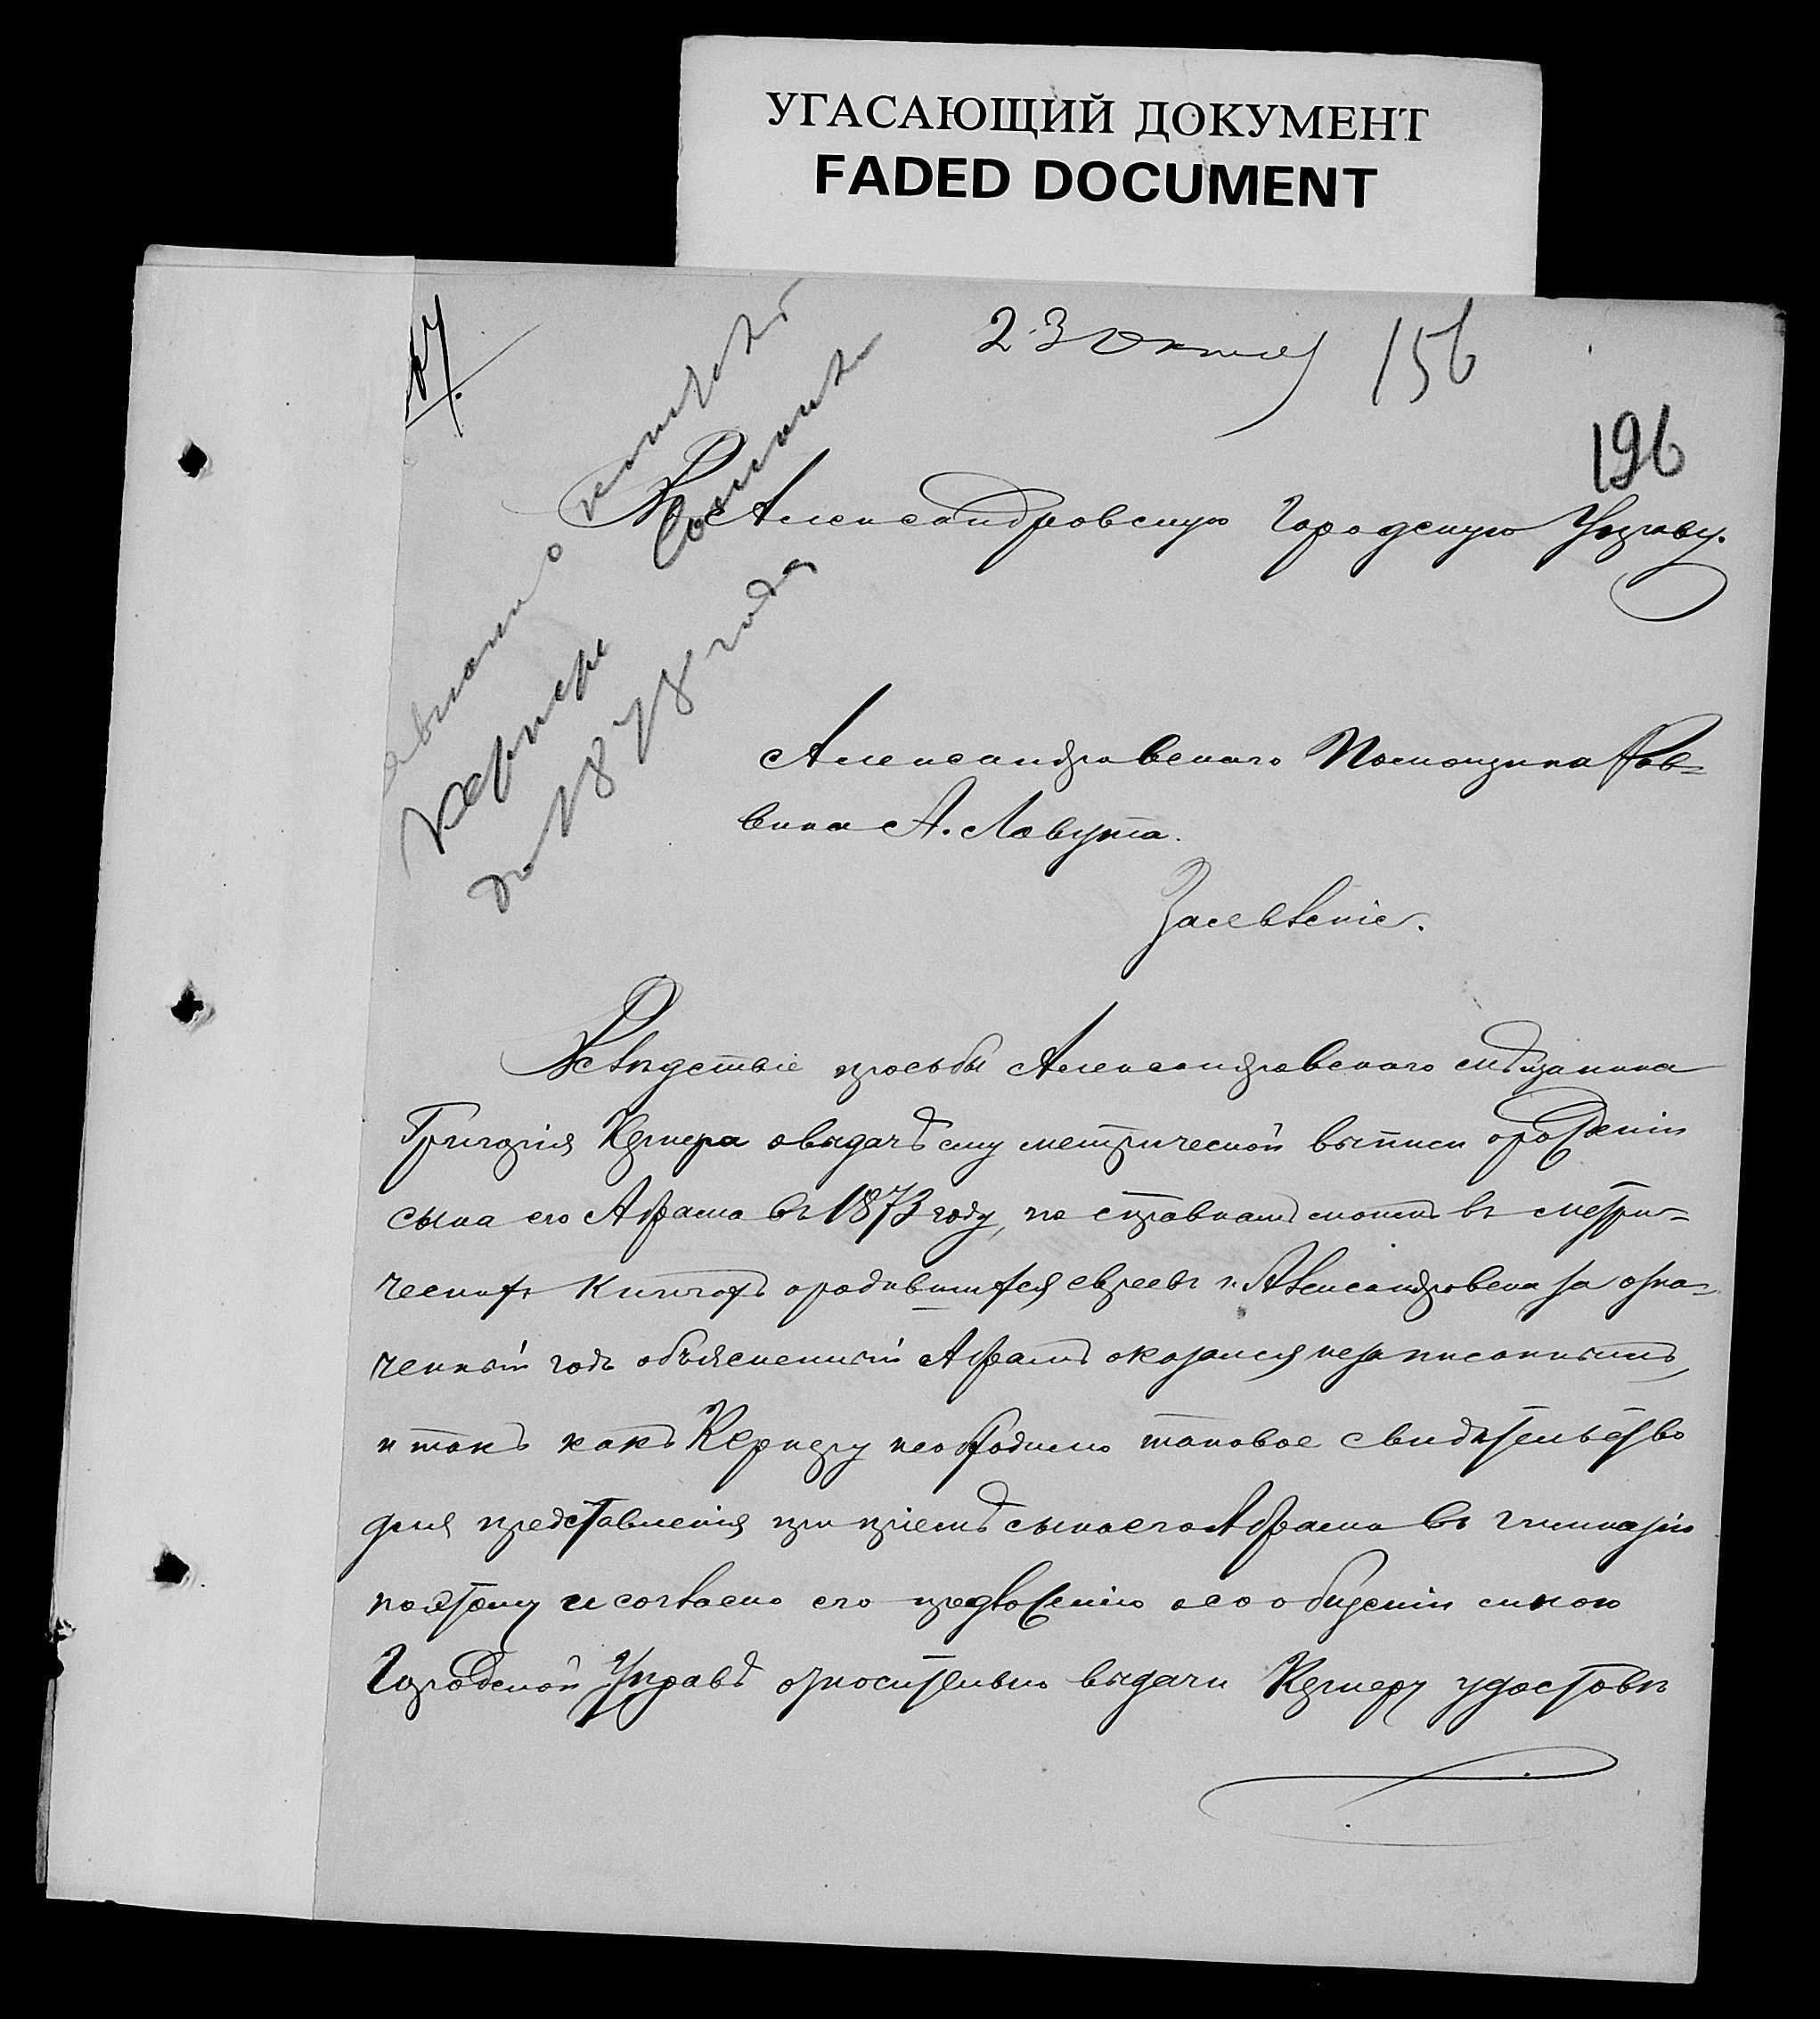 УГАСАЮЩИЙ ДОКУМЕНТ
FADED DOCUMENT
23 Октяб
156
196
Въ Александровскую Городскую Управу.
Кернере
1878 года
Александровскаго Помощника Рав=
вина А. Лавута.
Вслѣдствіе просьбы Александровскаго мѣщанина
Григорія Кернера о выдачѣ ему метрической выписи о рожденіи
сына его Абрама въ 1873 году, по справкамъ моимъ въ метри=
ческихъ книгахъ о родившихся евреевъ г. Александровска за озна=
ченный годъ объясненный Абрамъ оказался незаписаннымъ,
и такъ какъ Кернеру необходимо таковое свидѣтельство
для представленія при пріемѣ сына его Абрама въ гимназію
поэтому и согласно его предложенію о сообщеніи мною
Городской Управѣ относительно выдачи Кернеру удостовѣ